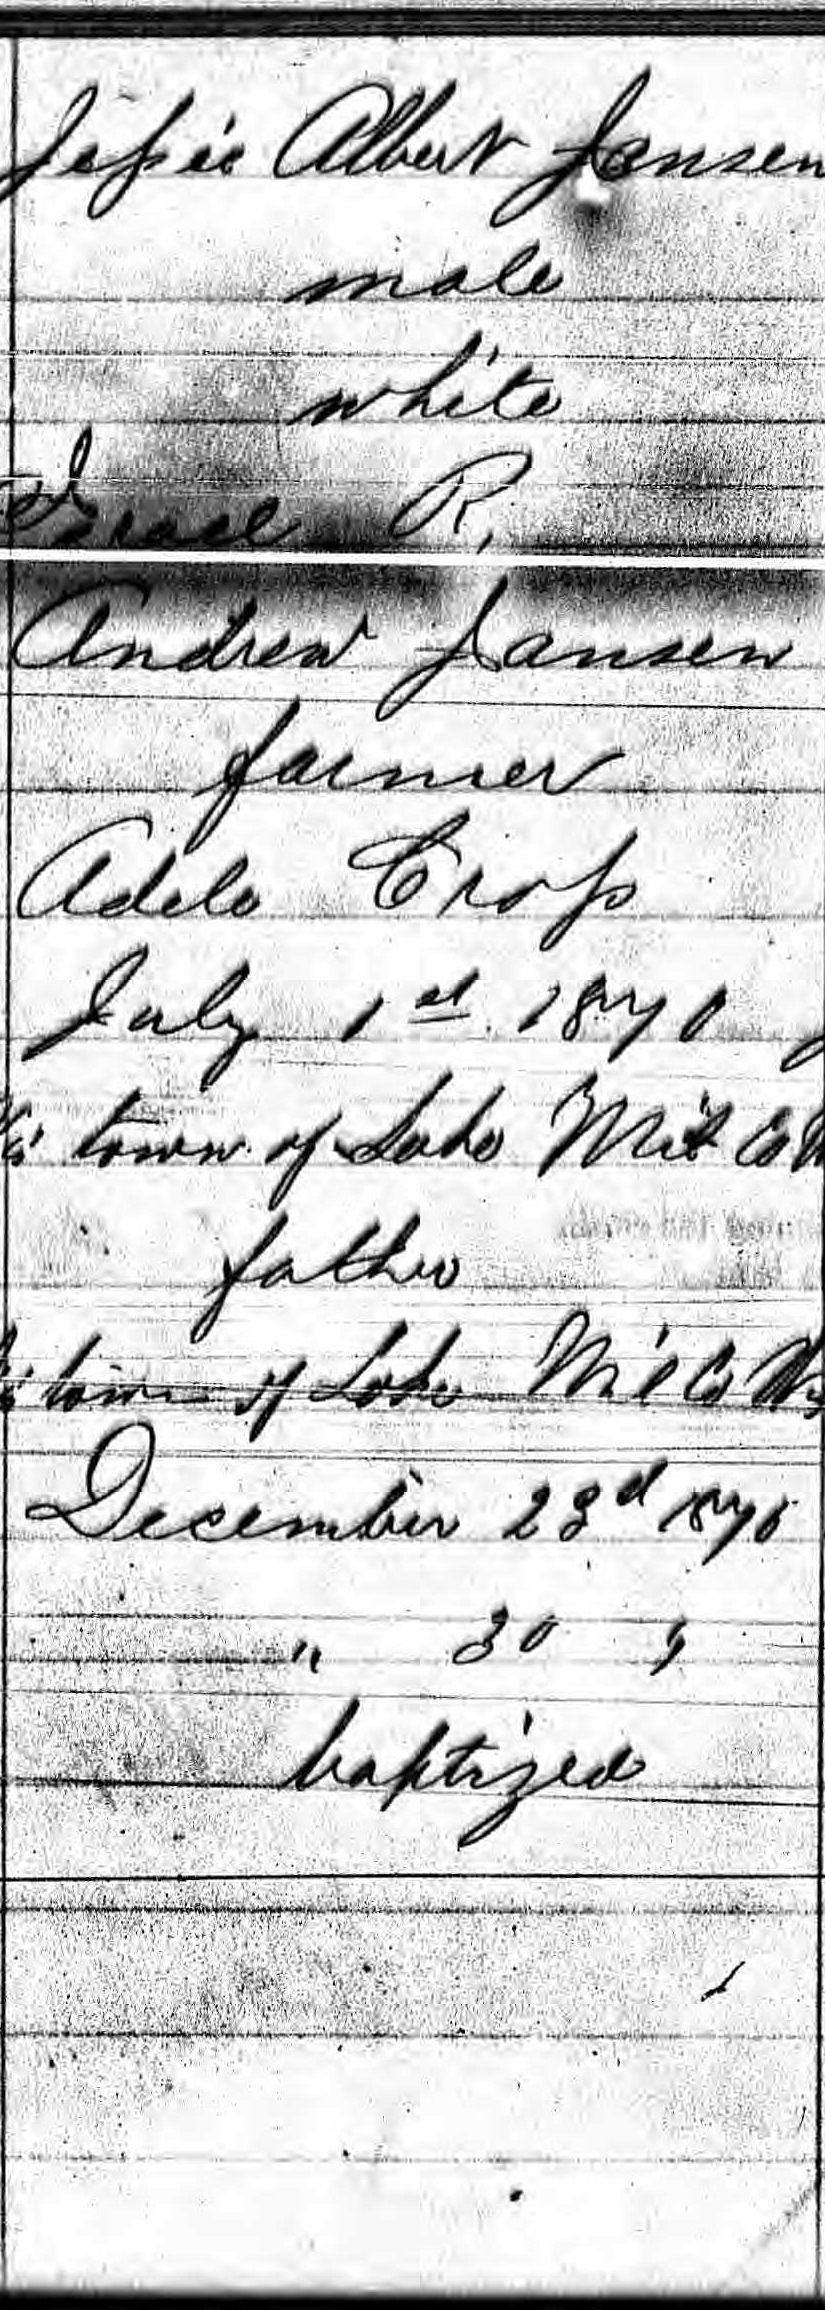 Jessie Albert Jansen
male
white
Grace R.
Andrew Jansen
farmer
Adele Cross
July 1st 1870
town of Lake Mil Co
father
town of Lake Mil Co Wis
December 23d 1870
" 30 "
baptized